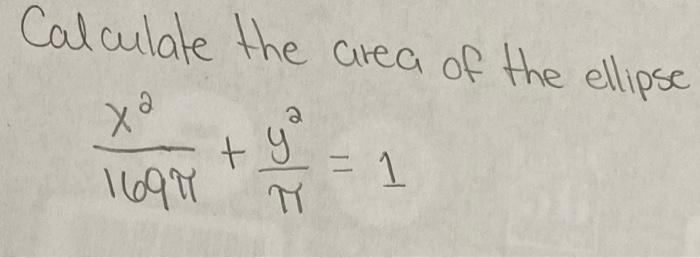 Calculate the area of the ellipse
x²/169π + y²/π = 1